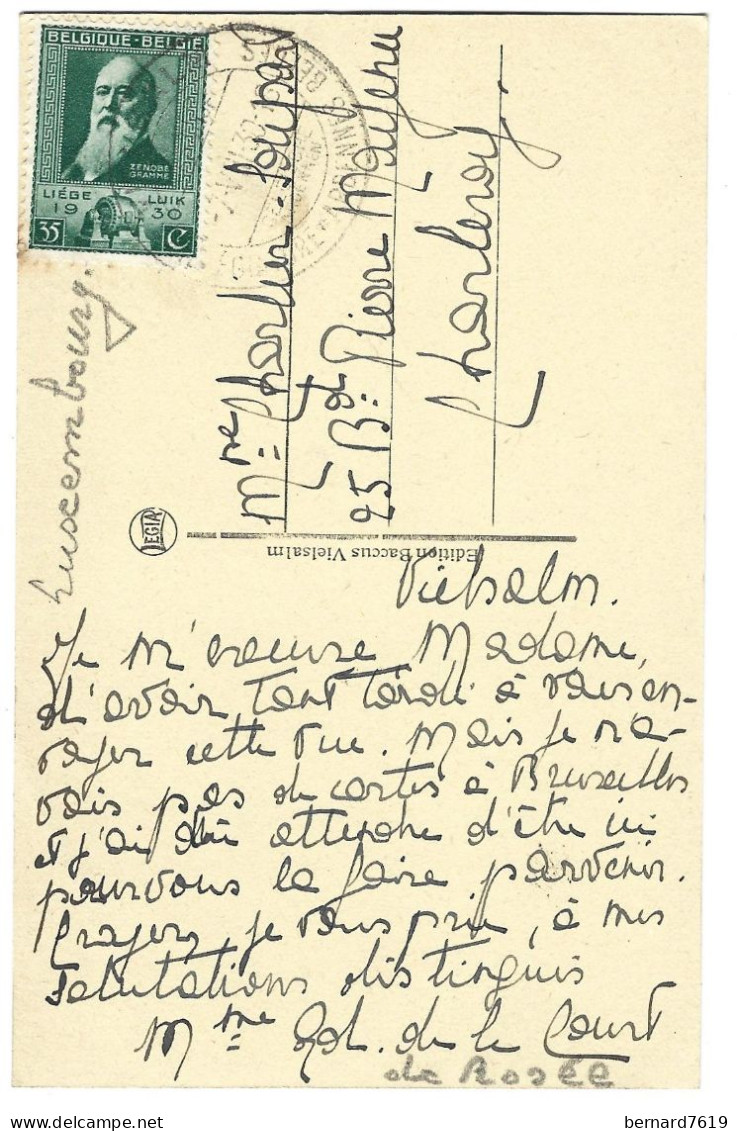 BELGIQUE-BELGIË
ZENOBE
GRAMME
LIÉGE LUIK
19 30
35 C
Luxembourg.
Mme Charlier-
25 Bd Pierre Mayence
Charleroy
LEGIA
Edition Baccus Vielsalm
Vielsalm.
Je m'excuse Madame,
d'avoir tant tardé à vous en-
voyer cette vue. Mais je n'a-
vais pas de cartes à Bruxelles
et j'ai dû attendre d'être ici
pour vous la faire parvenir.
Croyez, je vous prie, à mes
salutations distingués
Mme de le Court
de Rosée
bernard7619